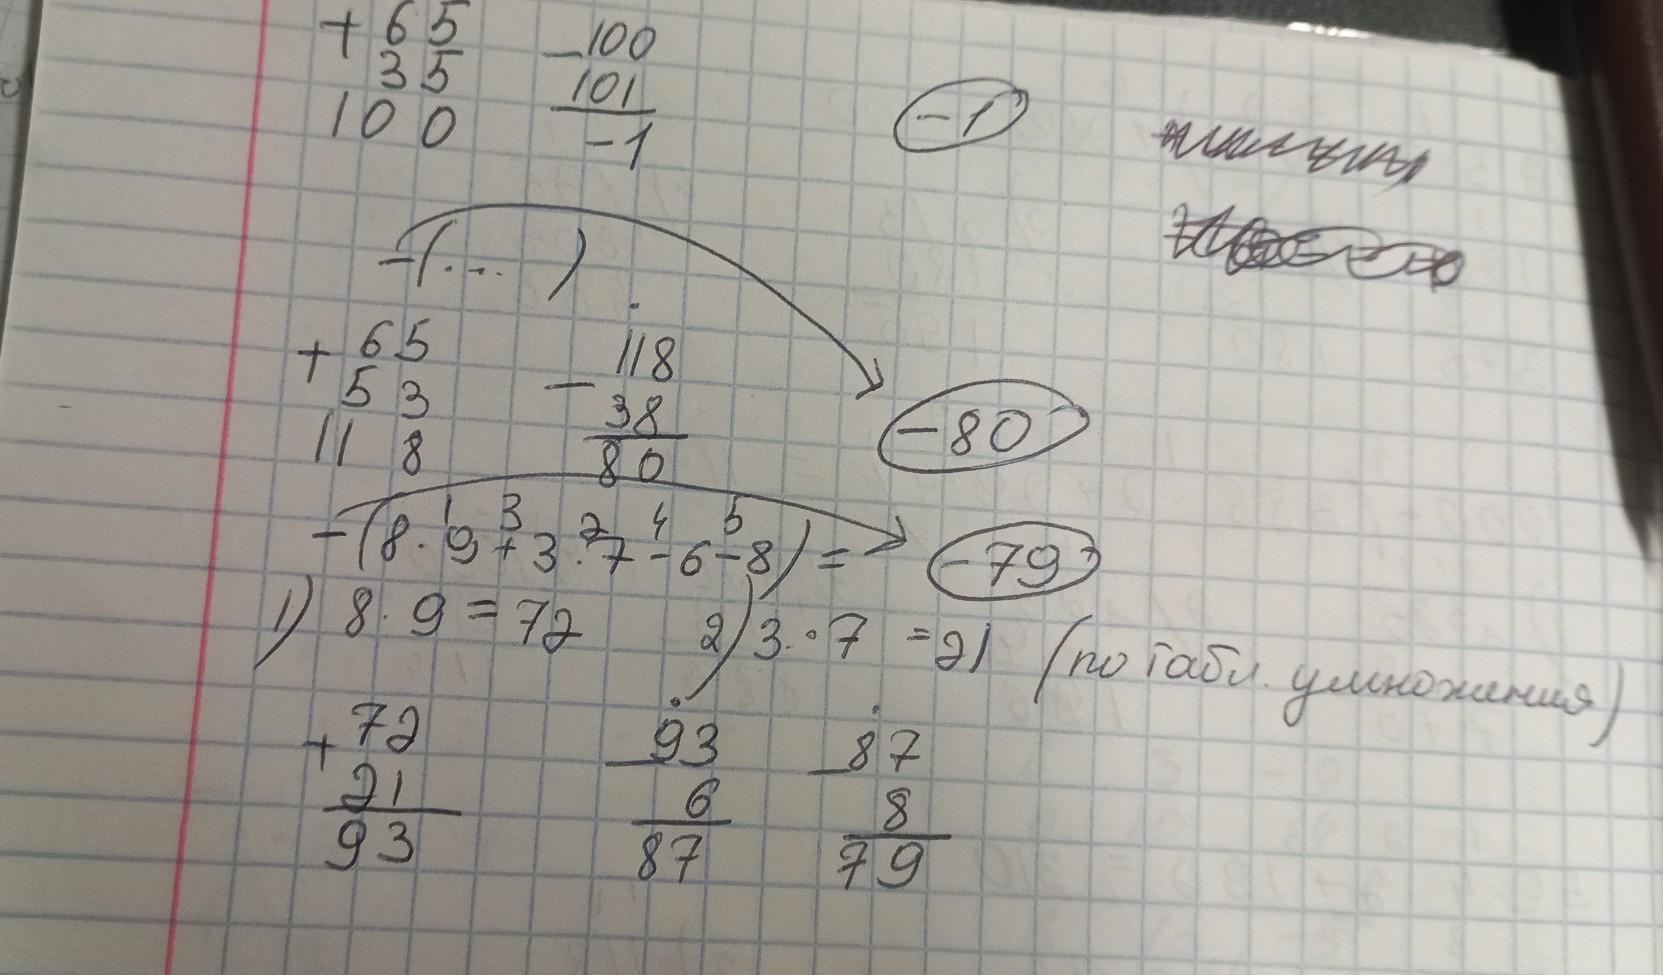 + 65 - 100
35 101
100 -1 -1
-(... )
+ 65 - 118
53 38 -80
118 80
1 3 2 4 5
-(8·9+3·7-6-8) = -79
1) 8·9=72 2) 3·7 =21 (по табл. умножения)
+ 72 - 93 - 87
21 6 8
93 87 79